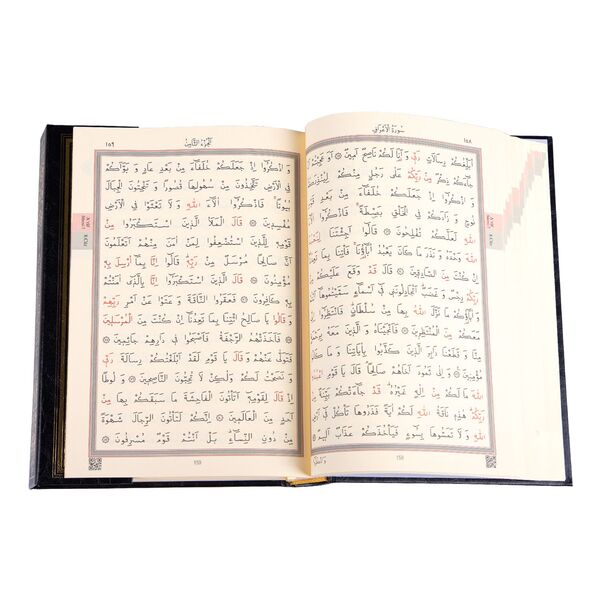 سُورَةُ الْأَعْرَافِ ١٥٨
أُبَلِّغُكُمْ رِسَالَاتِ رَبِّي وَ أَنَا لَكُمْ نَاصِحٌ أَمِينٌ ۝ أَوَ عَجِبْتُمْ
جَاءَكُمْ ذِكْرٌ مِنْ رَبِّكُمْ عَلَى رَجُلٍ مِنْكُمْ لِيُنْذِرَكُمْ
وَ اذْكُرُوا إِذْ جَعَلَكُمْ خُلَفَاءَ مِنْ بَعْدِ قَوْمِ
نُوحٍ وَ زَادَكُمْ فِي الْخَلْقِ بَصْطَةً فَاذْكُرُوا آلَاءَ
اللهِ لَعَلَّكُمْ تُفْلِحُونَ ۝ قَالُوا أَجِئْتَنَا لِنَعْبُدَ
اللهَ وَحْدَهُ وَ نَذَرَ مَا كَانَ يَعْبُدُ آبَاؤُنَا فَأْتِنَا بِمَا
إِنْ كُنْتَ مِنَ الصَّادِقِينَ ۝ قَالَ قَدْ وَقَعَ عَلَيْكُمْ مِنْ
رَبِّكُمْ رِجْسٌ وَ غَضَبٌ أَتُجَادِلُونَنِي فِي أَسْمَاءٍ سَمَّيْتُمُوهَا
وَ آبَاؤُكُمْ مَا نَزَّلَ اللهُ بِهَا مِنْ سُلْطَانٍ فَانْتَظِرُوا إِنِّي
مَعَكُمْ مِنَ الْمُنْتَظِرِينَ ۝ فَأَنْجَيْنَاهُ وَ الَّذِينَ مَعَهُ بِرَحْمَةٍ
مِنَّا وَ قَطَعْنَا دَابِرَ الَّذِينَ كَذَّبُوا بِآيَاتِنَا وَ مَا كَانُوا
مُؤْمِنِينَ ۝ وَ إِلَى ثَمُودَ أَخَاهُمْ صَالِحًا قَالَ يَا قَوْمِ اعْبُدُوا
اللهَ مَا لَكُمْ مِنْ إِلٰهٍ غَيْرُهُ قَدْ جَاءَتْكُمْ بَيِّنَةٌ مِنْ
رَبِّكُمْ هٰذِهِ نَاقَةُ اللهِ لَكُمْ آيَةً فَذَرُوهَا تَأْكُلْ فِي أَرْضِ
اللهِ وَ لَا تَمَسُّوهَا بِسُوءٍ فَيَأْخُذَكُمْ عَذَابٌ أَلِيمٌ ۝
158
اَلْجُزْءُ الثَّامِنُ ١٥٩
وَ اذْكُرُوا إِذْ جَعَلَكُمْ خُلَفَاءَ مِنْ بَعْدِ عَادٍ وَ بَوَّأَكُمْ
فِي الْأَرْضِ تَتَّخِذُونَ مِنْ سُهُولِهَا قُصُورًا وَ تَنْحِتُونَ الْجِبَالَ
بُيُوتًا فَاذْكُرُوا آلَاءَ اللهِ وَ لَا تَعْثَوْا فِي الْأَرْضِ
مُفْسِدِينَ ۝ قَالَ الْمَلَأُ الَّذِينَ اسْتَكْبَرُوا مِنْ
قَوْمِهِ لِلَّذِينَ اسْتُضْعِفُوا لِمَنْ آمَنَ مِنْهُمْ أَتَعْلَمُونَ
أَنَّ صَالِحًا مُرْسَلٌ مِنْ رَبِّهِ قَالُوا إِنَّا بِمَا أُرْسِلَ بِهِ
مُؤْمِنُونَ ۝ قَالَ الَّذِينَ اسْتَكْبَرُوا إِنَّا بِالَّذِي آمَنْتُمْ
بِهِ كَافِرُونَ ۝ فَعَقَرُوا النَّاقَةَ وَ عَتَوْا عَنْ أَمْرِ رَبِّهِمْ
وَ قَالُوا يَا صَالِحُ ائْتِنَا بِمَا تَعِدُنَا إِنْ كُنْتَ مِنَ الْمُرْسَلِينَ
۝ فَأَخَذَتْهُمُ الرَّجْفَةُ فَأَصْبَحُوا فِي دَارِهِمْ جَاثِمِينَ ۝
فَتَوَلَّى عَنْهُمْ وَ قَالَ يَا قَوْمِ لَقَدْ أَبْلَغْتُكُمْ رِسَالَةَ رَبِّي
وَ نَصَحْتُ لَكُمْ وَلٰكِنْ لَا تُحِبُّونَ النَّاصِحِينَ ۝ وَ لُوطًا
إِذْ قَالَ لِقَوْمِهِ أَتَأْتُونَ الْفَاحِشَةَ مَا سَبَقَكُمْ بِهَا مِنْ
أَحَدٍ مِنَ الْعَالَمِينَ ۝ إِنَّكُمْ لَتَأْتُونَ الرِّجَالَ شَهْوَةً
مِنْ دُونِ النِّسَاءِ بَلْ أَنْتُمْ قَوْمٌ مُسْرِفُونَ ۝
159